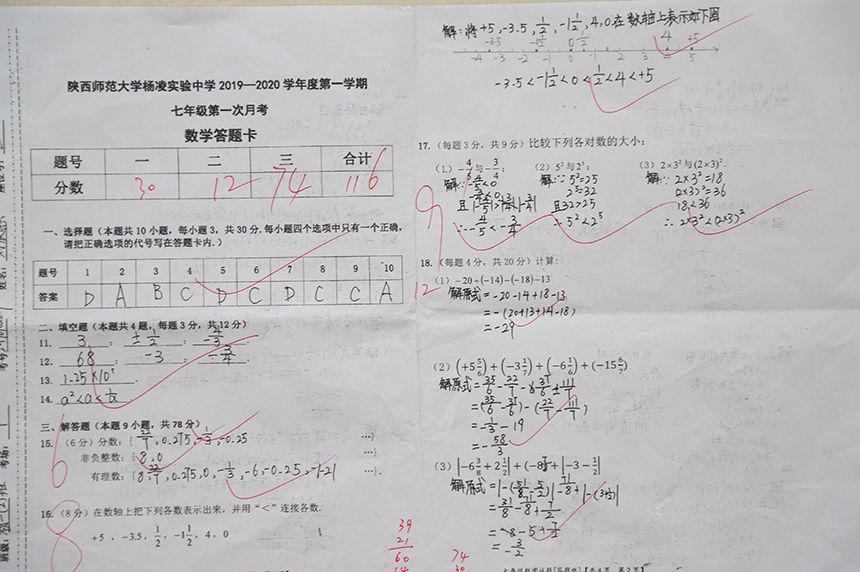 陕西师范大学杨凌实验中学 2019—2020 学年度第一学期
七年级第一次月考
数学答题卡
题号 一 二 三 合计
分数 30 12 74 116
一、选择题（本题共 10 小题，每小题 3，共 30 分.每小题四个选项中只有一个正确，
请把正确选项的代号写在答题卡内.）
题号 1 2 3 4 5 6 7 8 9 10
答案 D A B C D C D C C A
二、填空题（本题共 4 题，每题 3 分，共 12 分）
11. 3 ; ±1/2 ;
12. 68 ; -3 ; -3/4 .
13. 1.25×10⁵ .
14. a²<a<1/a
三、解答题（本题 9 小题，共 78 分）
6
15. （6 分）分数：{ 22/7, 0.275, -1/3, -0.25 …}
非负整数：{ 8, 0 …}
有理数：{ 8, 22/7, 0.275, 0, -1/3, -6, -0.25, -|-2| …}.
8
16. （8 分）在数轴上把下列各数表示出来，并用“<”连接各数.
+5 ，-3.5，1/2，-1 1/2，4，0
解：将+5，-3.5，1/2，-1 1/2，4，0在数轴上表示如下图
-3.5 -1 1/2 0 1/2 4 +5
-4 -3 -2 -1 0 1 2 3 4 5
-3.5<-1 1/2<0<1/2<4<+5
17. （每题 3 分，共 9 分）比较下列各对数的大小：
9
（1）-4/5与-3/4； （2）5²与2⁵； （3）2×3²与(2×3)².
解∵-4/5<0 解∵5²=25 解∵2×3²=18
-3/4<0 2⁵=32 (2×3)²=36
且|-4/5|>|-3/4| 且32>25 18<36
∴-4/5<-3/4 ∴5²<2⁵ ∴2×3²<(2×3)²
18. （每题 4 分，共 20 分）计算：
12
（1）-20+(-14)-(-18)-13
解原式=-20-14+18-13
=-(20+13+14-18)
=-29
（2）(+5 5/6)+(-3 1/7)+(-6 1/6)+(-15 6/7)
=-1/3-19
=-58/3
（3）|-6 3/8+2 1/2|+(-8 7/8)+|-3-1/2|
=-8-5+7/2
=-3/2
39
21
60
14
74
30
七年级数学试题[答题纸]【共 4 页 第 2 页】